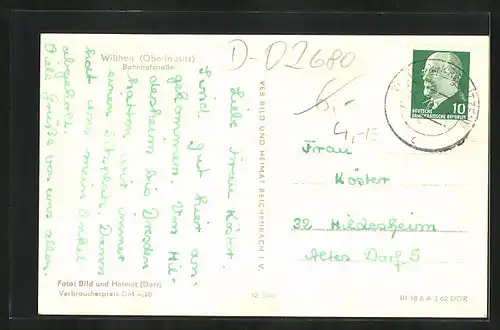 Wilthen (Oberlausitz)
Bahnhofstraße
D-02680
6,-
4,-
Liebe Frau Köster.
Sind gut hier an-
gekommen. Von Hil-
desheim bis Dresden
hatten wir immer
einen Sitzplatz. Dann
hat uns mein Onkel
abgeholt.
Viele Grüße von uns allen.
Foto: Bild und Heimat (Dorr)
Verbraucherpreis DM -,20
VEB BILD UND HEIMAT REICHENBACH I. V.
10
DEUTSCHE
DEMOKRATISCHE REPUBLIK
Frau
Köster
32 Hildesheim
Altes Dorf 5
III 18 6 A 3 62 DDR